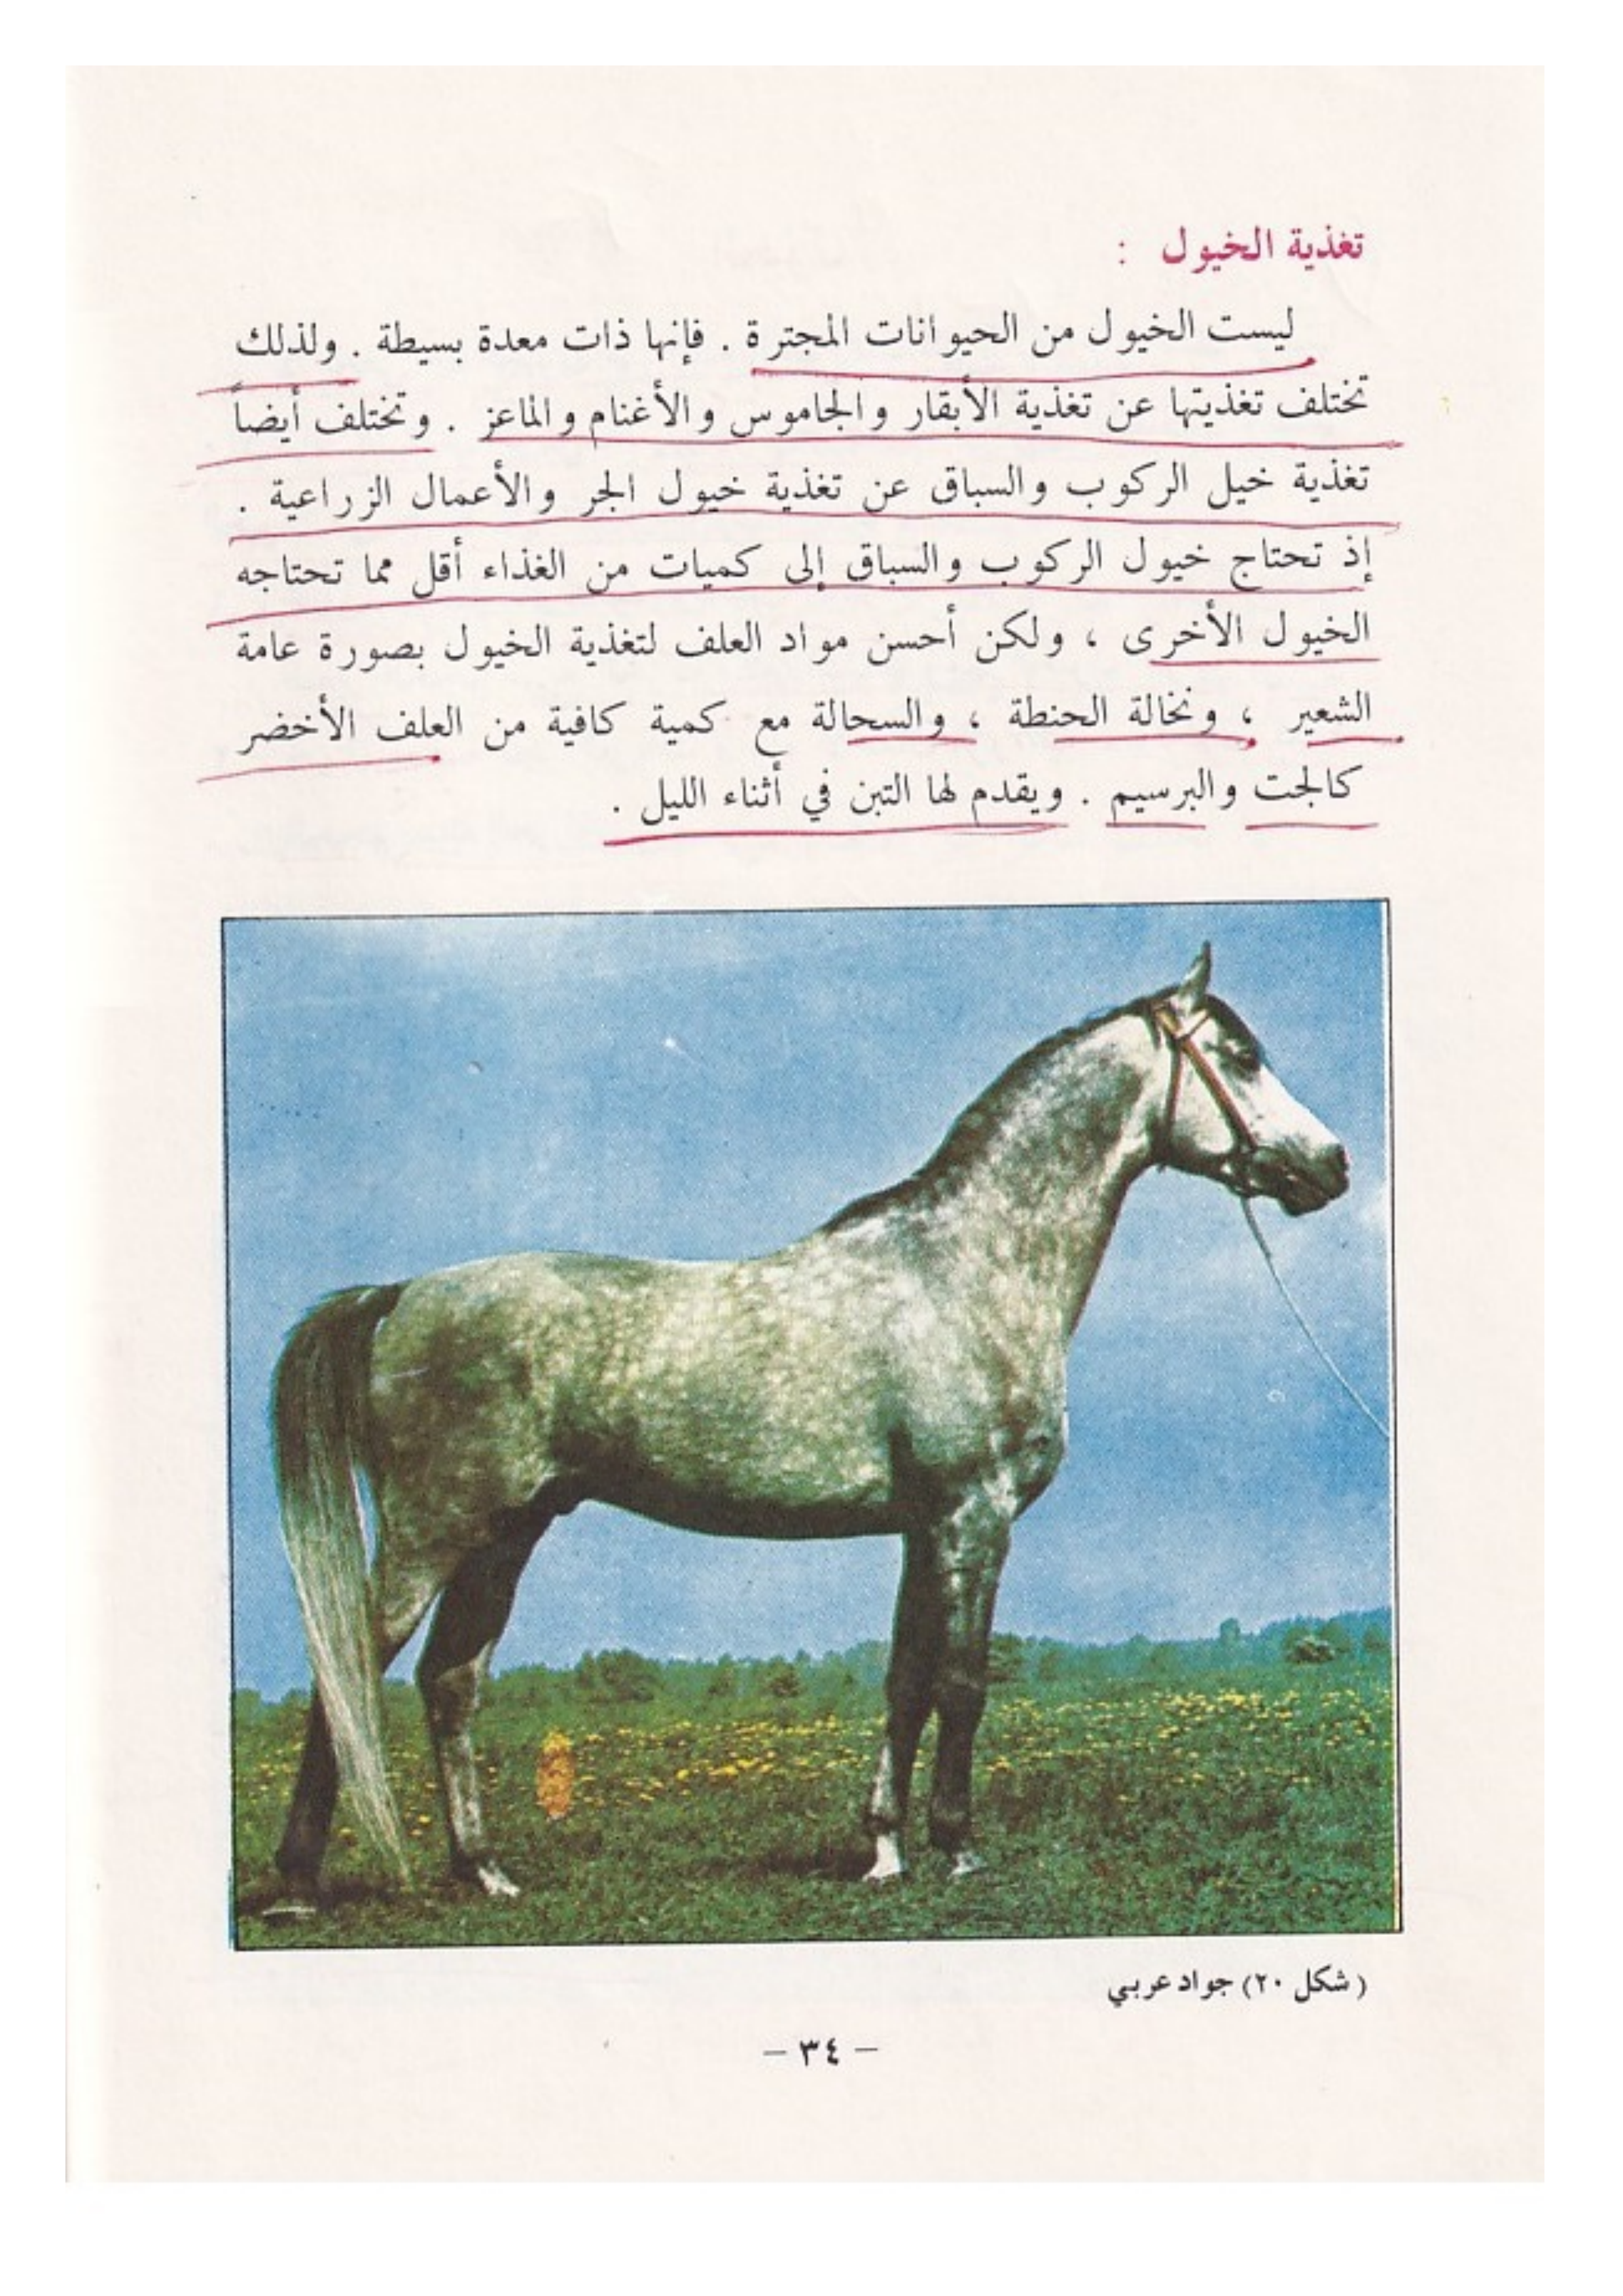 تغذية الخيول :
ليست الخيول من الحيوانات المجترة . فإنها ذات معدة بسيطة . ولذلك
تختلف تغذيتها عن تغذية الأبقار والجاموس والأغنام والماعز . وتختلف أيضاً
تغذية خيل الركوب والسباق عن تغذية خيول الجر والأعمال الزراعية .
إذ تحتاج خيول الركوب والسباق إلى كميات من الغذاء أقل مما تحتاجه
الخيول الأخرى ، ولكن أحسن مواد العلف لتغذية الخيول بصورة عامة
الشعير ، ونخالة الحنطة ، والسحالة مع كمية كافية من العلف الأخضر
كالجت والبرسيم . ويقدم لها التبن في أثناء الليل .
( شكل ٢٠) جواد عربي
– ٣٤ –